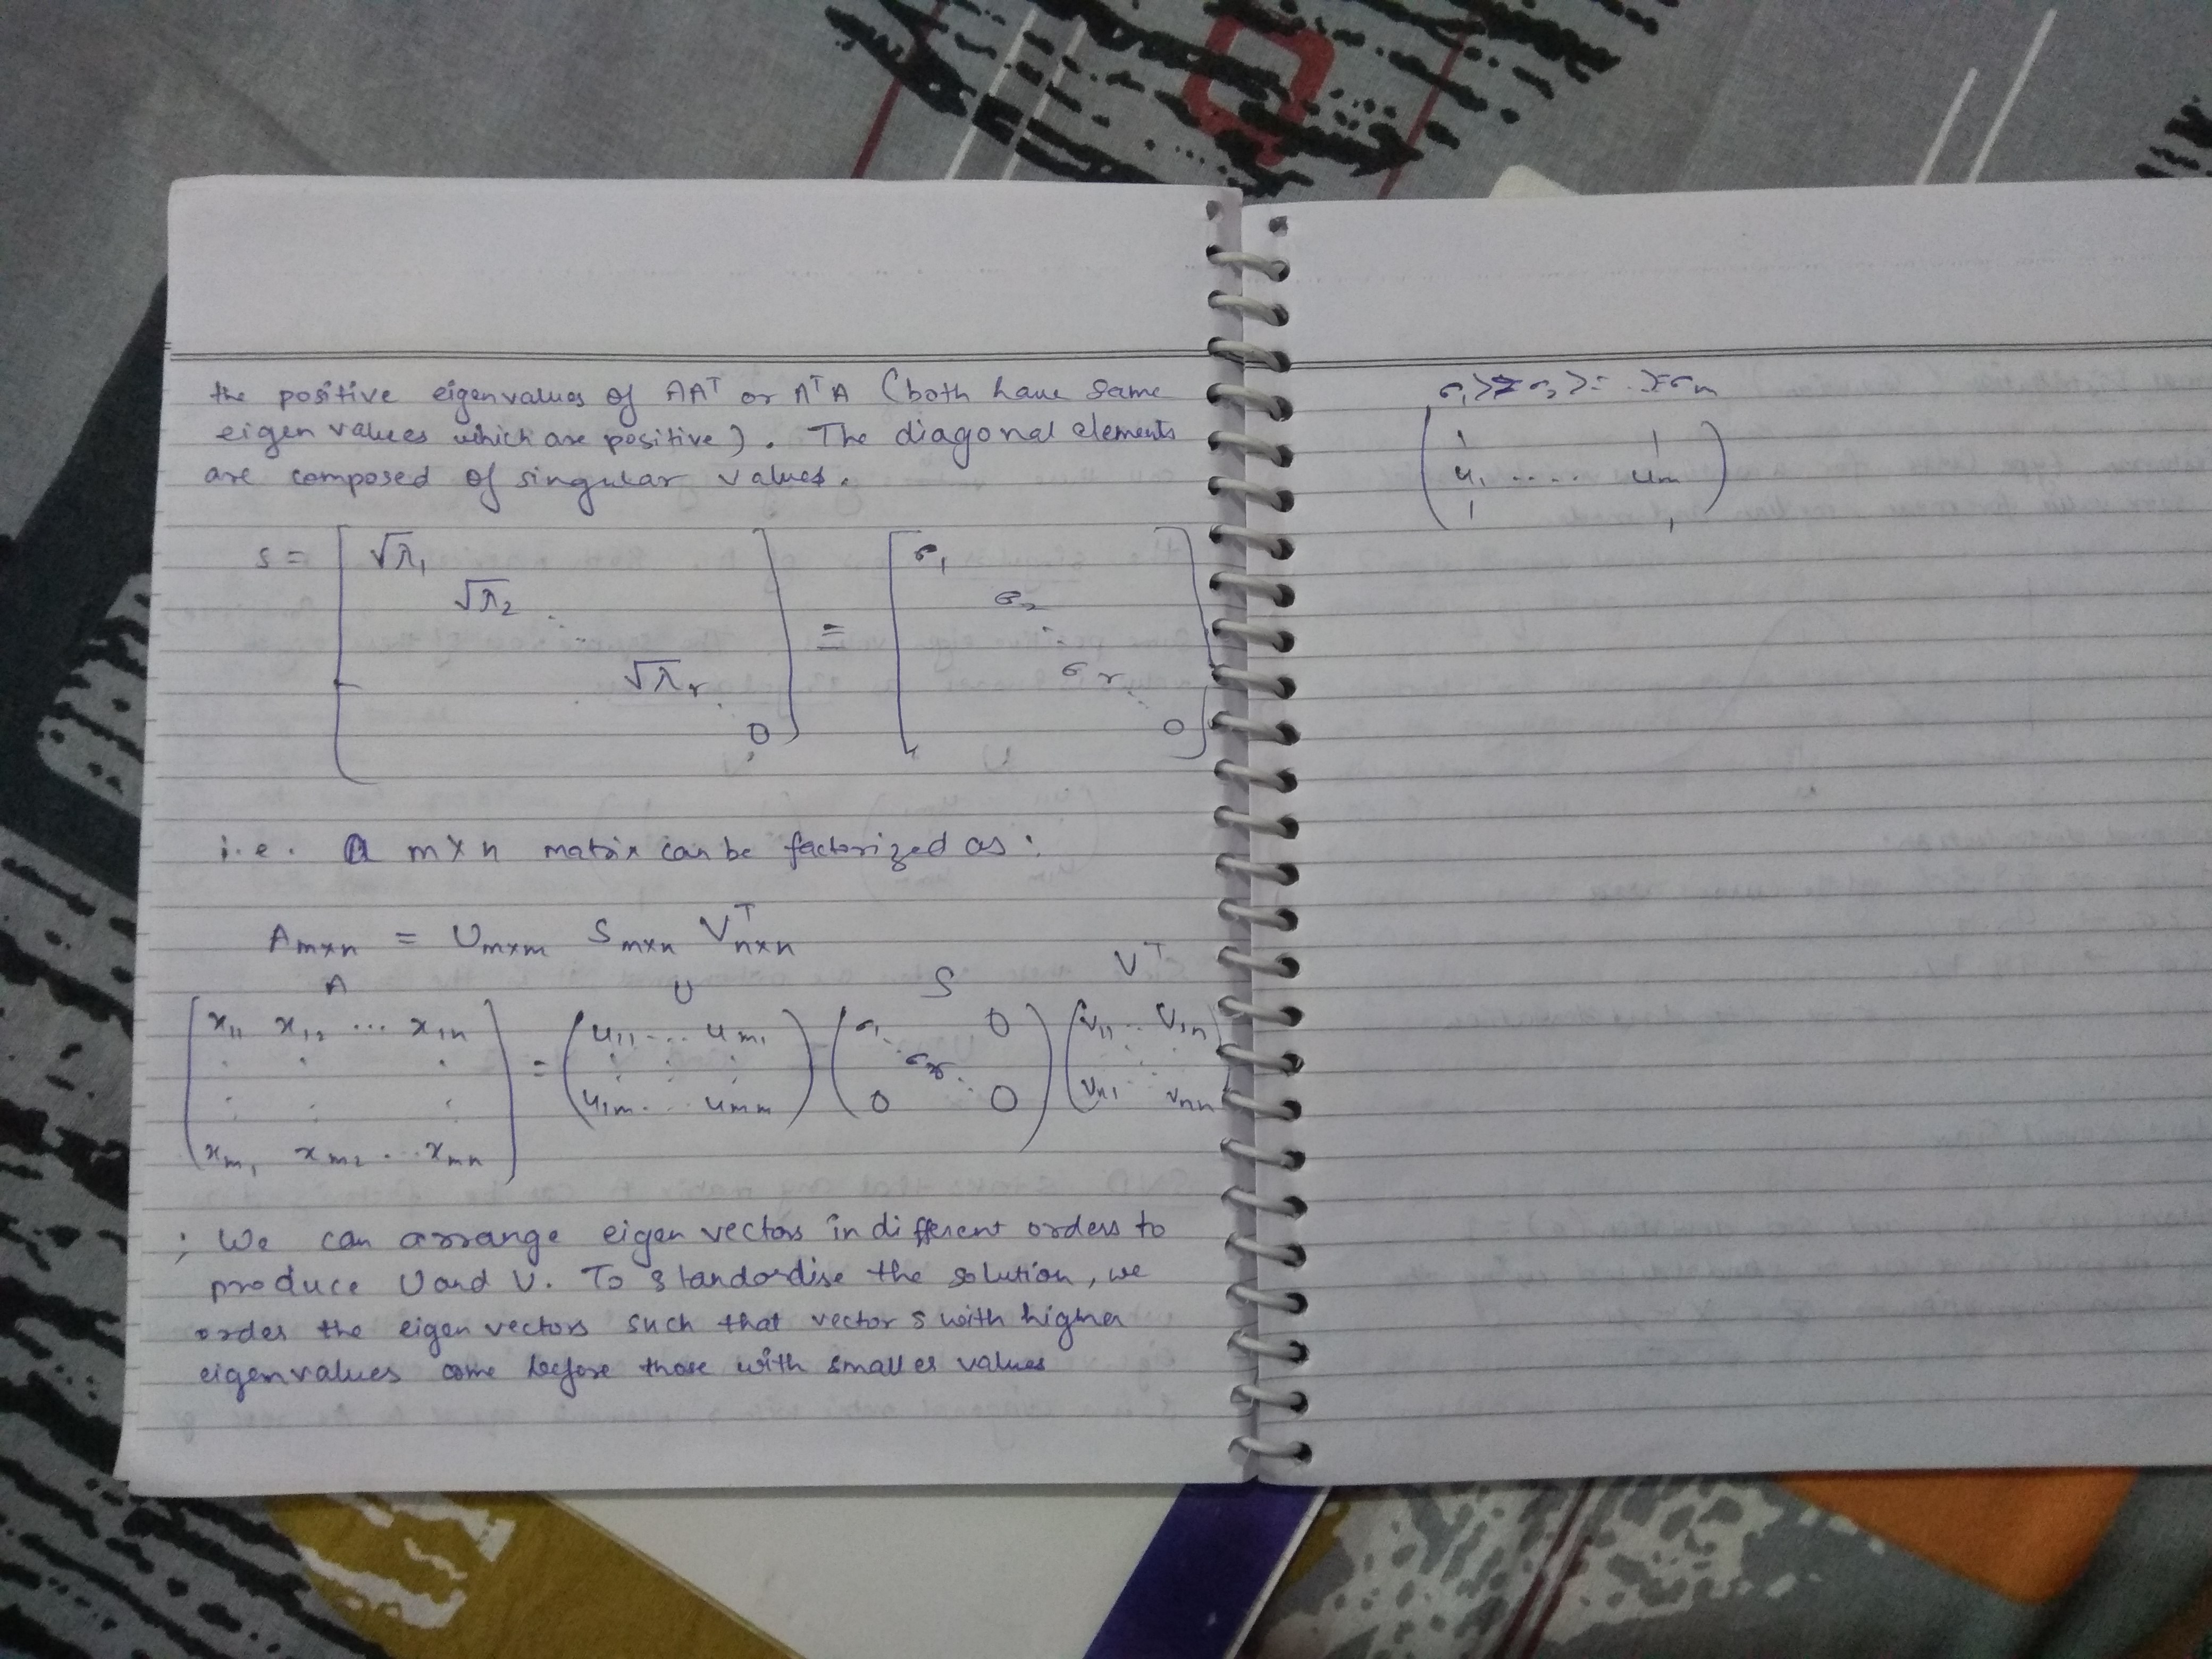 the positive eigenvalues of AAᵀ or AᵀA (both have same
eigen values which are positive). The diagonal elements
are composed of singular values.
S = [ √λ₁ √λ₂ ⋱ √λᵣ ⋱ 0 ] = [ σ₁ σ₂ ⋱ σᵣ ⋱ 0 ]
i.e. A m×n matrix can be factorized as:
Aₘₓₙ = Uₘₓₘ Sₘₓₙ Vᵀₙₓₙ
A U S Vᵀ
[ x₁₁ x₁₂ ... x₁ₙ
xₘ₁ xₘ₂ ... xₘₙ ] = ( u₁₁ ... uₘ₁
u₁ₘ ... uₘₘ ) ( σ₁ 0
σᵣ
0 0 ) ( v₁₁ ... v₁ₙ
vₙ₁ vₙₙ )
; We can arrange eigen vectors in different orders to
produce U and V. To standardise the solution, we
order the eigen vectors such that vectors with higher
eigenvalues come before those with smaller values
( u₁ .... uₘ )